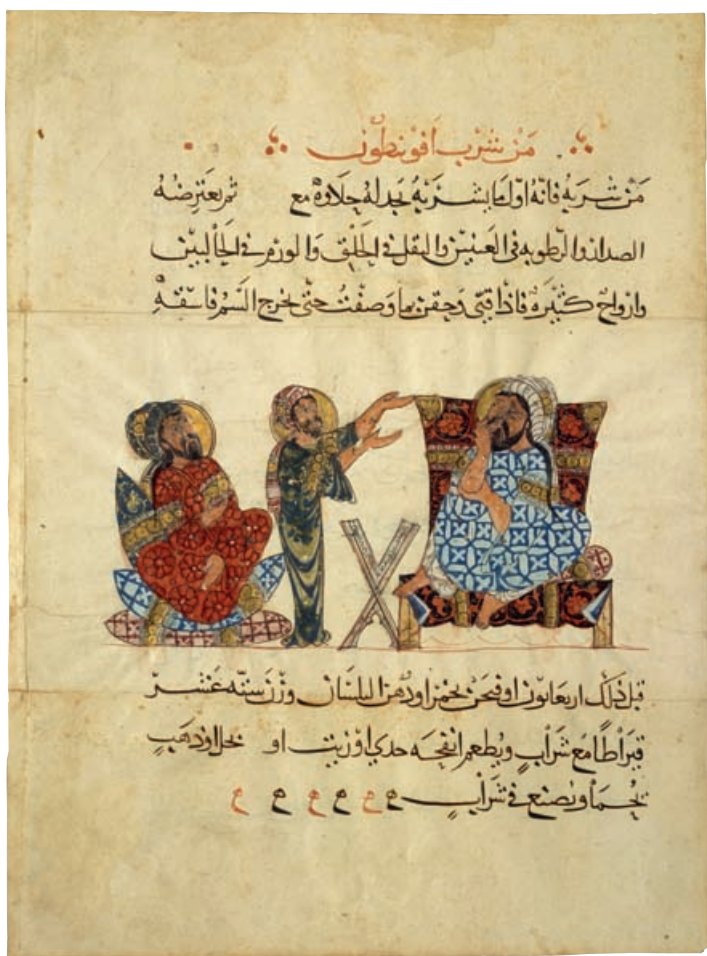 من شرب افونيطون
من شربه فانه اول ما يشربه يجد له حلاوة مع ثم يعترضه
الصداع والرطوبه فى العينين والثقل فى الحلق والورم فى الحالبين
وارواح كثيرة فاذا قيى وحقن بما وصفت حتى يخرج السم فاسقه
قبل ذلك اوفيحن بخمر او دهن البلسان وزن ستة عشر
قيراطا مع شراب ويطعم انفحه جدي او زيت او خل او ذهب
يحما ويصنع فى شراب